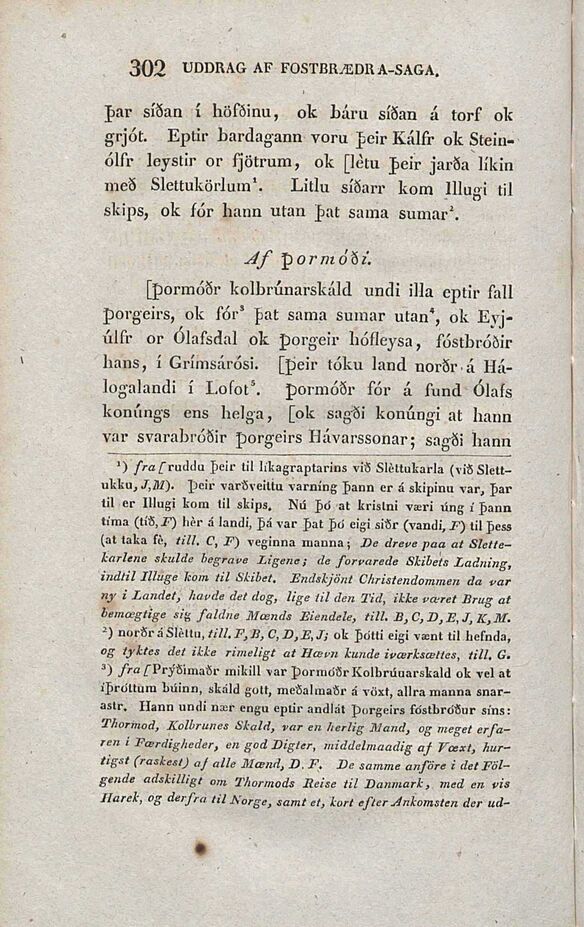 302 UDDRAG AF FOSTBRÆDRA-SAGA.
þar síðan í höfðinu, ok báru síðan á torf ok
grjót. Eptir bardagann voru þeir Kálfr ok Stein-
ólfr leystir or fjötrum, ok [lètu þeir jarða líkin
með Slettukörlum¹. Litlu síðarr kom Illugi til
skips, ok fór hann utan þat sama sumar².
Af þormóði.
[þormóðr kolbrúnarskáld undi illa eptir fall
þorgeirs, ok fór³ þat sama sumar utan⁴, ok Eyj-
úlfr or Ólafsdal ok þorgeir hófleysa, fóstbróðir
hans, í Grímsárósi. [þeir tóku land norðr á Há-
logalandi í Lofot⁵. þormóðr fór á fund Ólafs
konúngs ens helga, [ok sagði konúngi at hann
var svarabróðir þorgeirs Hávarssonar; sagði hann
¹) fra [ruddu þeir til líkagraptarins við Slèttukarla (við Slett-
ukku, J, M). þeir varðveittu varníng þann er á skipinu var, þar
til er Illugi kom til skips. Nú þó at kristni væri úng í þann
tíma (tíð, F) hèr á landi, þá var þat þó eigi siðr (vandi, F) til þess
(at taka fè, till. C, F) veginna manna; De dreve paa at Slette-
karlene skulde begrave Ligene; de forvarede Skibets Ladning,
indtil Illuge kom til Skibet. Endskjönt Christendommen da var
ny i Landet, havde det dog, lige til den Tid, ikke været Brug at
bemægtige sig faldne Mænds Eiendele, till. B, C, D, E, J, K, M.
²) norðr á Slèttu, till. F, B, C, D, E, J; ok þótti eigi vænt til hefnda,
og tyktes det ikke rimeligt at Hævn kunde iværksættes, till. G.
³) fra [Prýðimaðr mikill var þormóðr Kolbrúnarskald ok vel at
íþróttum búinn, skáld gott, meðalmaðr á vöxt, allra manna snar-
astr. Hann undi nær engu eptir andlát þorgeirs fóstbróður síns:
Thormod, Kolbrunes Skald, var en herlig Mand, og meget erfa-
ren i Færdigheder, en god Digter, middelmaadig af Væxt, hur-
tigst (raskest) af alle Mænd, D. F. De samme anföre i det Föl-
gende adskilligt om Thormods Reise til Danmark, med en vis
Harek, og derfra til Norge, samt et, kort efter Ankomsten der ud-